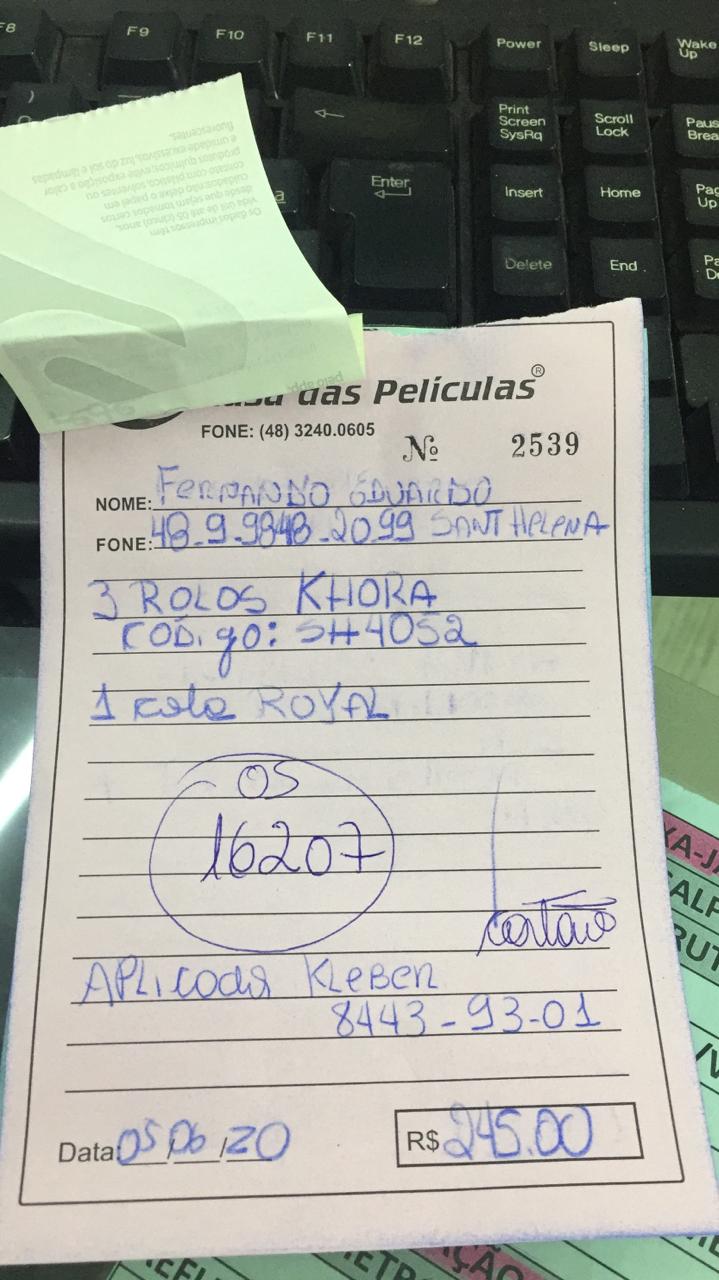 F8
F9
F10
F11
F12
Power
Sleep
Wake Up
Print Screen SysRq
Scroll Lock
Enter
Insert
Home
Delete
End
Os dados impressos têm
vida útil de até 05 (cinco) anos,
desde que sejam tomados certos
cuidados:não deixe o papel em
contato com plástico, solventes ou
produtos químicos; evite exposição a calor
e umidade excessivos, luz do sol e lâmpadas
fluorescentes.
das Películas®
FONE: (48) 3240.0605
Nº 2539
NOME: FERNANDO EDUARDO
FONE: 48-9-9848-2099 SANT HELENA
3 ROLOS KHORA
CÓDigo: SH4052
1 cola ROYAL
OS
16207
cartão
APLicodoR KLEBER
8443-93-01
Data: 05/06/20
R$ 245.00